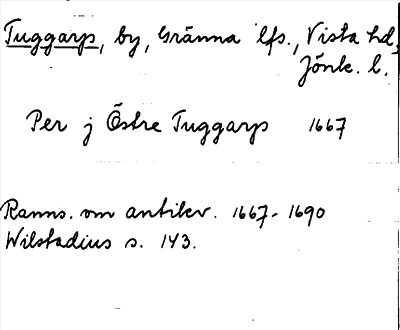 Tuggarp, by, Gränna lfs., Vista hd,
Jönk. l.
Per j Östre Tuggarp 1667
Ranns. om antikv. 1667-1690
Wilstadius s. 143.